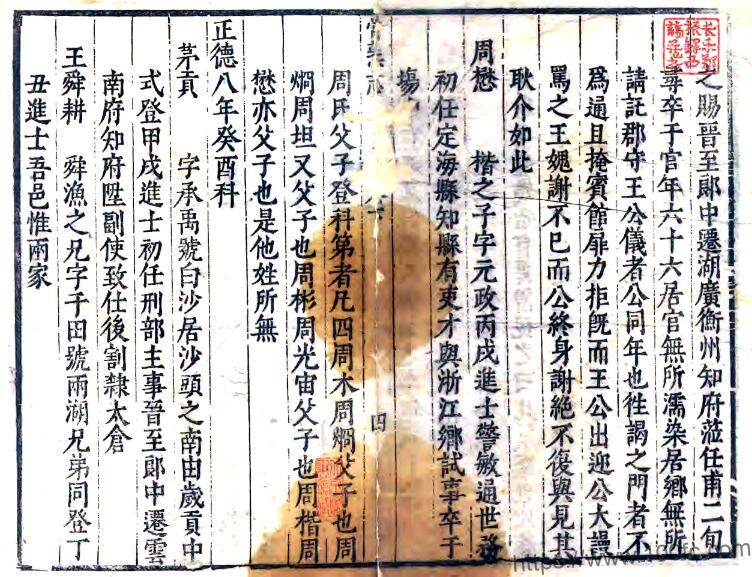 之賜晉至郎中遷湖廣衡州知府蒞任甫二旬
尋卒于官年六十六居官無所濡染居鄉無所
請託郡守王公儀者公同年也徃謁之門者不
爲通且掩賓館扉力拒旣而王公出迎公大謾
罵之王媿謝不已而公終身謝絕不復與見其
耿介如此
周懋 楷之子字元政丙戌進士警敏通世務
初任定海縣知縣有吏才與浙江鄉試事卒于
塲
四
周氏父子登科第者凡四周木周烱父子也周
烱周坦又父子也周彬周光宙父子也周楷周
懋亦父子也是他姓所無
正德八年癸酉科
茅貢 字承禹號白沙居沙頭之南由歲貢中
式登甲戌進士初任刑部主事晉至郎中遷雲
南府知府陞副使致仕後割隸太倉
王舜耕 舜漁之兄字于田號兩湖兄弟同登丁
丑進士吾邑惟兩家